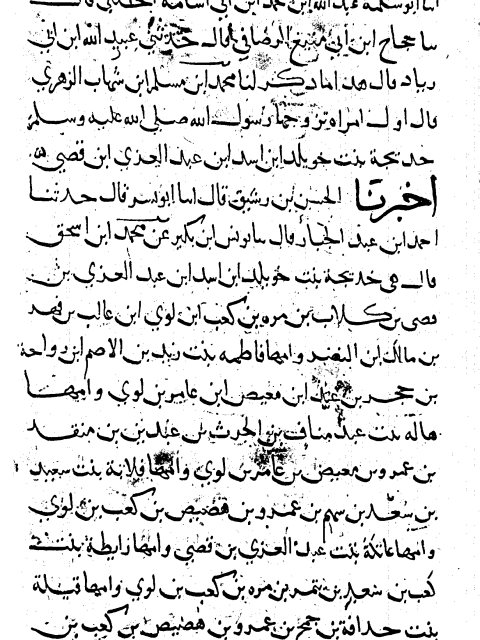 انا ابو سلمة عبد الله ابن محمد ابن ابي اسامة الحلبي قال
سا حجاج ابن ابي منيع الرصافي قال حدثني عبيد الله ابن ابي
زياد قال هذا ما ذكر لنا محمد ابن مسلم ابن شهاب الزهري
قال اول امراه تزوجها رسول الله صلى الله عليه وسلم
خديجة بنت خويلد ابن اسد ابن عبد العزى ابن قصي
اخبرنا الحسن بن رشيق قال اسا ابو بسر قال حدثنا
احمد ابن عبد الجبار قال سا يونس ابن بكير عن محمد ابن اسحق
قال هي خديجة بنت خويلد ابن اسد ابن عبد العزى بن
قصي بن كلاب بن مره بن كعب ابن لوي ابن غالب بن فهر
بن مالك ابن النضر وامها فاطمه بنت زيد بن الاصم ابن رواحة
بن حجر بن عبد ابن معيص ابن عامر بن لوي وامها
هالة بنت عبد مناف بن الحرث بن عبد بن بن منقد
بن عمرو بن معيص بن عامر بن لوي وامها فلانة بنت سعيد
بن سعد بن سهم بن عمرو بن هصيص بن كعب بن لوي
وامها عاتكة بنت عبد العزى بن قصي وامها رايطة بنت
كعب بن سعد بن تيم بن مره بن كعب بن لوي وامها قيلة
بنت حذافة بن جمح بن عمرو بن هصيص بن كعب بن